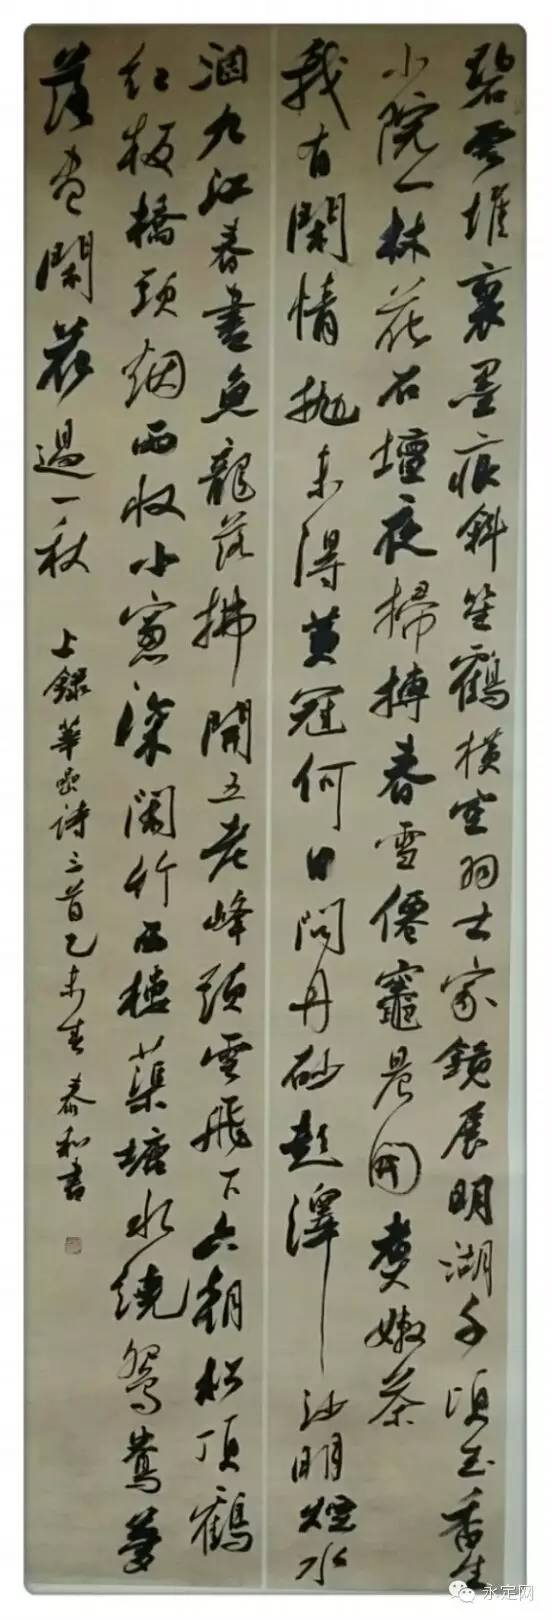 碧雲堆裏墨痕斜笙鶴橫空羽士家鏡展明湖千頃玉香生
小院一林花石壇夜掃摶春雪僊竈晨開煮嫩茶
我有閑情拋未得黃冠何日問丹砂彭澤沙明煙水
涸九江春盡魚龍落拂開五老峰頭雲飛下六朝松頂鶴
紅板橋頭烟雨收小窗深閣竹西樓蕖塘水繞鴛鴦夢
落盡閑花過一秋
上錄華嵒詩三首乙未春泰和書
永定网